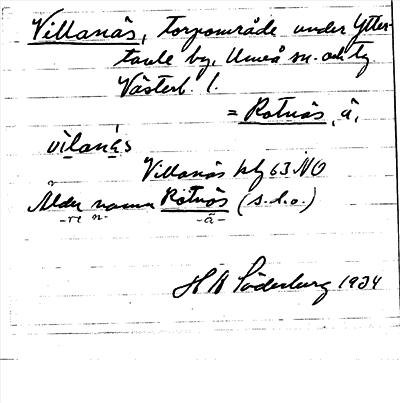 Villanäs, torpområde under Ytter-
tavle by, Umeå sn. och tg
Västerb. l.
= Rotnäs, ä.
vìlanä́s
Villanäs kbl 63 NO
Äldre namn Rötnäs (s.d.o.)
-re n- -ä-
H A Söderberg 1934